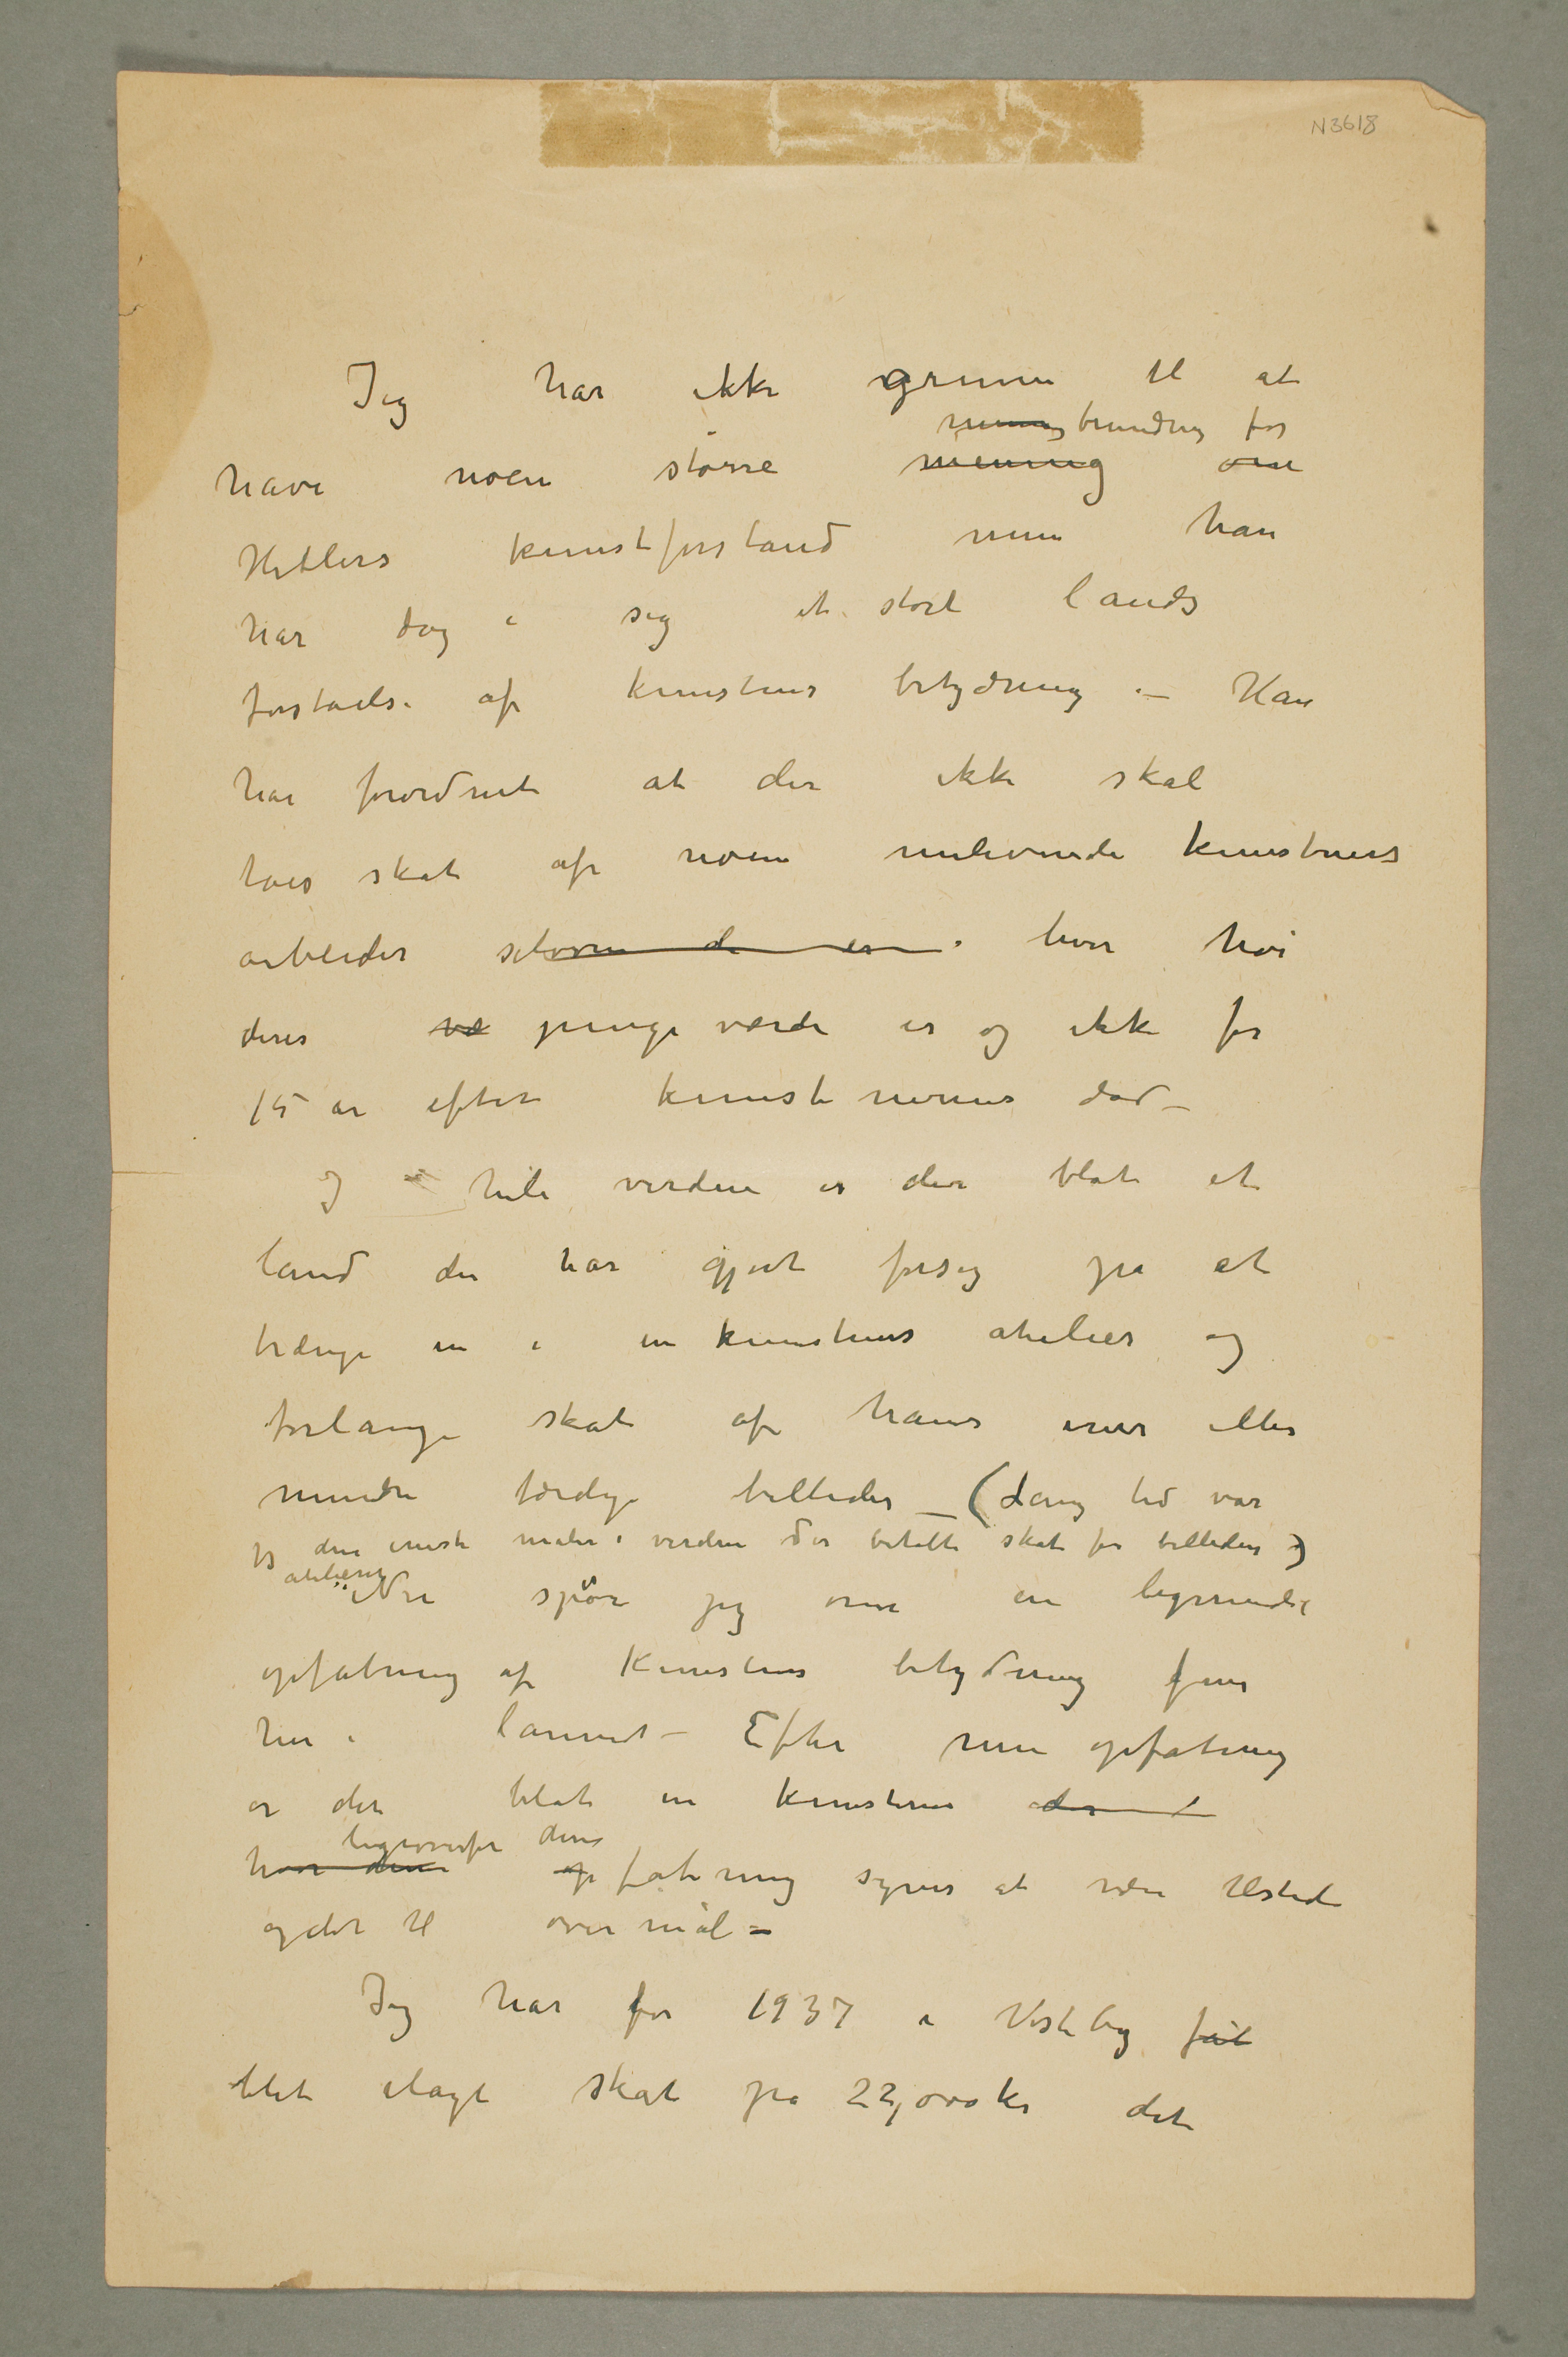 N3618
Jeg har ikke grunn til at
bundring for
have noen større mening om
Hitlers kunstforstand men han
har dog i sig et stort lands
forståelse af kunstens betydning – Han
har forordnet at der ikke skal
taes skat af noen nulevende kunstners
arbeider selvom de er hvor høi
deres væ penge værdi er og ikke før
15 år efter kunstnernes død –
I hele verden er der blot et
land der har gjort forsøg på at
trænge in i en kunstners atelier og
forlange skat af hans mer eller
mindre færdige billeder – (Lang tid var
jeg den eneste maler i verden der betalte skat for billeder i
atelieret
Nu spør jeg om en begrundet
opfatning af Kunstens betydning fins
her i lannet – Efter min opfatning
er det blot en kunstner der
ligeoverfor denne
hvor denne opfatning synes at være tilstede
og det til overmål –
Jeg har for 1937 i Vestby fåt
blet ilagt skat på 22,000 kr det